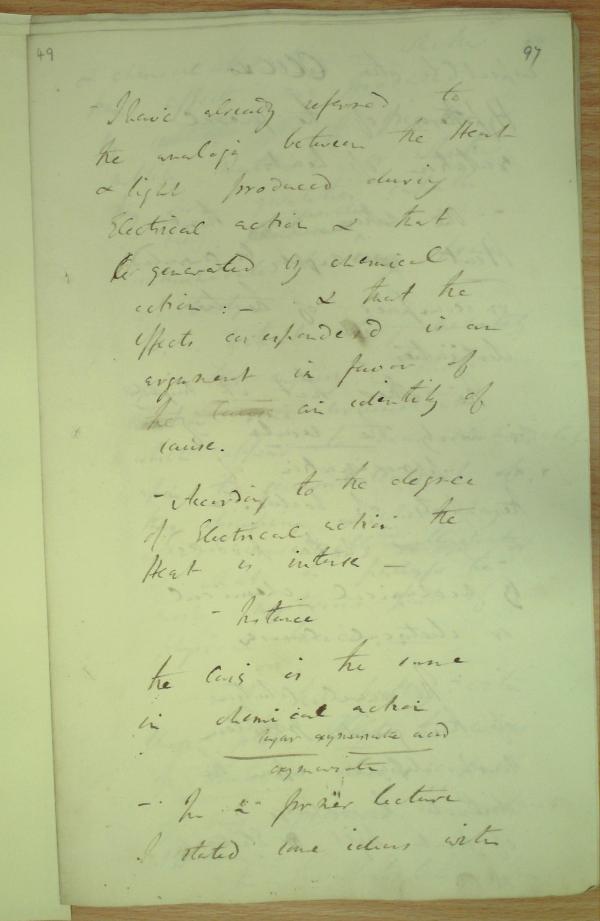 49
97
- I have already referred to
the analogy between the Heat
& light produced during
Electrical action & that
generated by chemical
action : - & that the
effects correspond is an
argument in favor of
the cause an identity of
cause.
- According to the degree
of Electrical action the
Heat is intense -
- Instance
the Law is the same
in chemical action
sugar oxymuriate acid
oxymuriate
- In a former lecture
I stated some ideas with